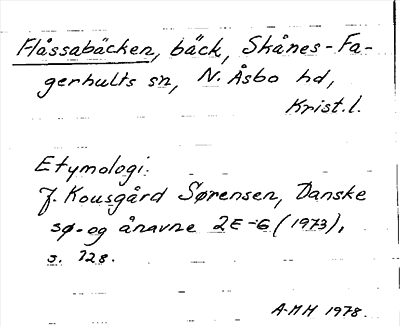 Flåssabäcken, bäck, Skånes-Fa-
gerhults sn, N. Åsbo hd,
Krist.l.
Etymologi:
J. Kousgård Sørensen, Danske
sø- og ånavne 2E-G (1973),
s. 128.
A-MH 1978.